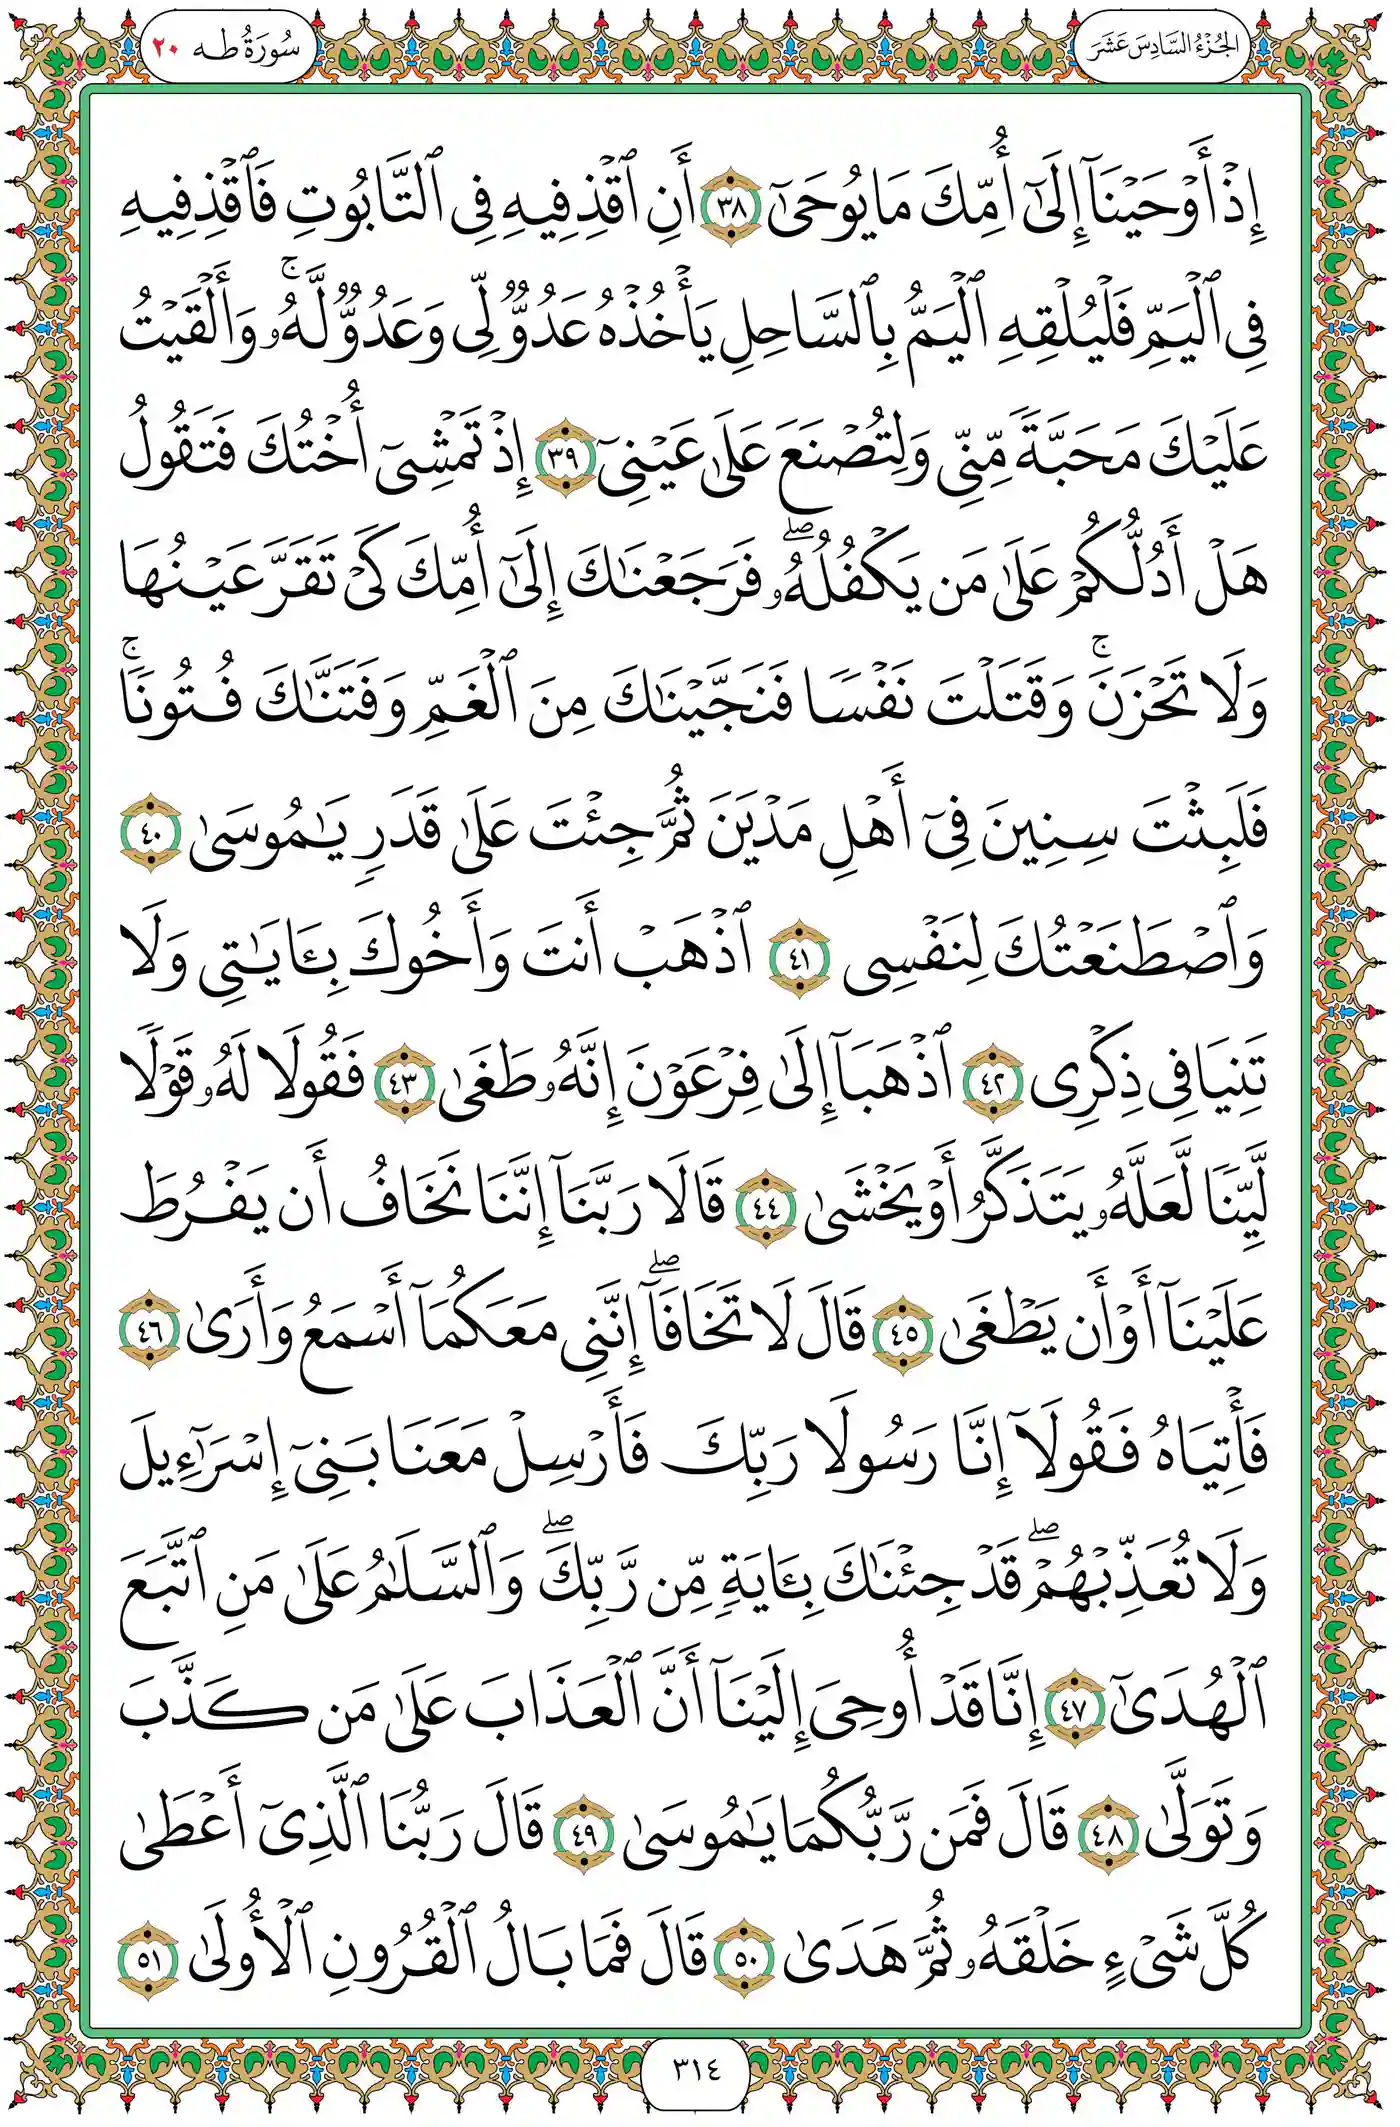 الجُزْءُ السَّادِسَ عَشَرَ
سُورَةُ طه ٢٠
إِذْ أَوْحَيْنَآ إِلَىٰٓ أُمِّكَ مَا يُوحَىٰٓ ٣٨ أَنِ ٱقْذِفِيهِ فِى ٱلتَّابُوتِ فَٱقْذِفِيهِ
فِى ٱلْيَمِّ فَلْيُلْقِهِ ٱلْيَمُّ بِٱلسَّاحِلِ يَأْخُذْهُ عَدُوٌّ لِّى وَعَدُوٌّ لَّهُۥ ۚ وَأَلْقَيْتُ
عَلَيْكَ مَحَبَّةً مِّنِّى وَلِتُصْنَعَ عَلَىٰ عَيْنِىٓ ٣٩ إِذْ تَمْشِىٓ أُخْتُكَ فَتَقُولُ
هَلْ أَدُلُّكُمْ عَلَىٰ مَن يَكْفُلُهُۥ ۖ فَرَجَعْنَٰكَ إِلَىٰٓ أُمِّكَ كَىْ تَقَرَّ عَيْنُهَا
وَلَا تَحْزَنَ ۚ وَقَتَلْتَ نَفْسًا فَنَجَّيْنَٰكَ مِنَ ٱلْغَمِّ وَفَتَنَّٰكَ فُتُونًا ۚ
فَلَبِثْتَ سِنِينَ فِىٓ أَهْلِ مَدْيَنَ ثُمَّ جِئْتَ عَلَىٰ قَدَرٍ يَٰمُوسَىٰ ٤٠
وَٱصْطَنَعْتُكَ لِنَفْسِى ٤١ ٱذْهَبْ أَنتَ وَأَخُوكَ بِـَٔايَٰتِى وَلَا
تَنِيَا فِى ذِكْرِى ٤٢ ٱذْهَبَآ إِلَىٰ فِرْعَوْنَ إِنَّهُۥ طَغَىٰ ٤٣ فَقُولَا لَهُۥ قَوْلًا
لَّيِّنًا لَّعَلَّهُۥ يَتَذَكَّرُ أَوْ يَخْشَىٰ ٤٤ قَالَا رَبَّنَآ إِنَّنَا نَخَافُ أَن يَفْرُطَ
عَلَيْنَآ أَوْ أَن يَطْغَىٰ ٤٥ قَالَ لَا تَخَافَآ ۖ إِنَّنِى مَعَكُمَآ أَسْمَعُ وَأَرَىٰ ٤٦
فَأْتِيَاهُ فَقُولَآ إِنَّا رَسُولَا رَبِّكَ فَأَرْسِلْ مَعَنَا بَنِىٓ إِسْرَٰٓءِيلَ
وَلَا تُعَذِّبْهُمْ ۖ قَدْ جِئْنَٰكَ بِـَٔايَةٍ مِّن رَّبِّكَ ۖ وَٱلسَّلَٰمُ عَلَىٰ مَنِ ٱتَّبَعَ
ٱلْهُدَىٰٓ ٤٧ إِنَّا قَدْ أُوحِىَ إِلَيْنَآ أَنَّ ٱلْعَذَابَ عَلَىٰ مَن كَذَّبَ
وَتَوَلَّىٰ ٤٨ قَالَ فَمَن رَّبُّكُمَا يَٰمُوسَىٰ ٤٩ قَالَ رَبُّنَا ٱلَّذِىٓ أَعْطَىٰ
كُلَّ شَىْءٍ خَلْقَهُۥ ثُمَّ هَدَىٰ ٥٠ قَالَ فَمَا بَالُ ٱلْقُرُونِ ٱلْأُولَىٰ ٥١
٣١٤